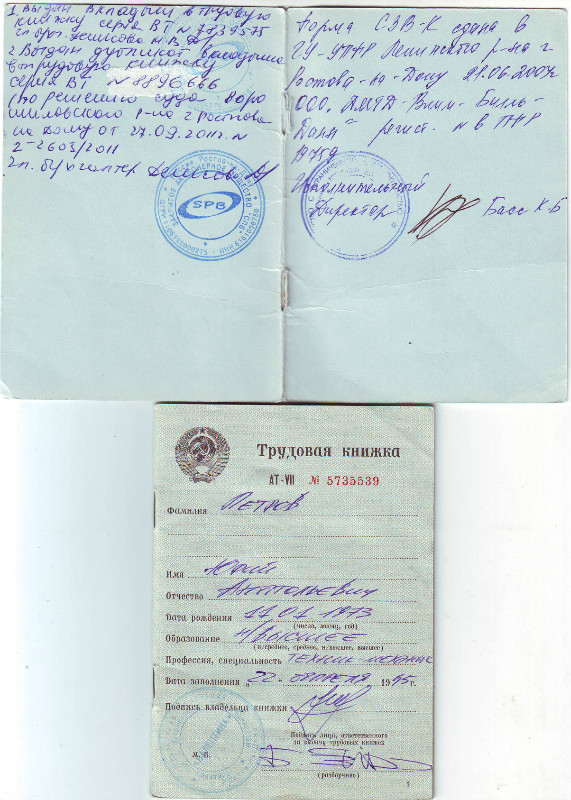 1. Выдан вкладыш в трудовую
книжку серия ВТ № 7839575
2. Выдан дубликат вкладыша
в трудовую книжку
серия ВТ №8896666
(по решению суда Воро
шиловского р-на г Ростова
на Дону от 27.09.2011г. №
2-2603/2011
гл. бухгалтер Денисова
SPB
Форма СЗВ-К сдана в
ГУ УПФР Ленинского р-на г
Ростова-на-Дону 21.06.2004
ООО
Дона" регист. № в ПФР
Исполнительный
Директор Басс К Б
Трудовая книжка
АТ-VII № 5735539
Фамилия Петров
Имя Юрий
Отчество Анатольевич
Дата рождения 11.01.1973
(число, месяц, год)
Образование н/высшее
(н/среднее, среднее, н/высшее, высшее)
Профессия, специальность техник-механик
Дата заполнения „22" апреля 1995 г.
Подпись владельца книжки
Подпись лица, ответственного
за выдачу трудовых книжек
М.П.
(разборчиво)
1